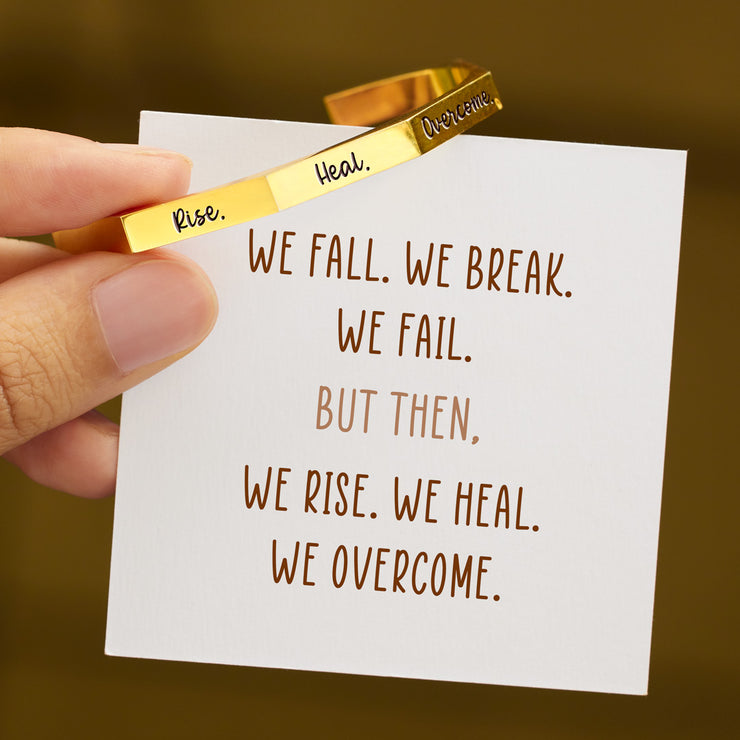 Rise. Heal. Overcome.
WE FALL. WE BREAK.
WE FAIL.
BUT THEN,
WE RISE. WE HEAL.
WE OVERCOME.